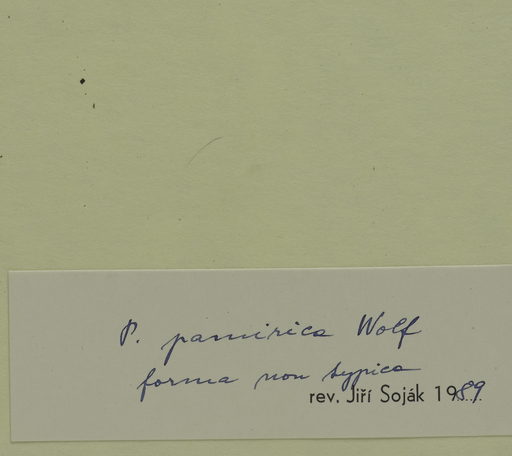 P. pamirica Wolf
forma non typica
rev. Jiří Soják 1989.